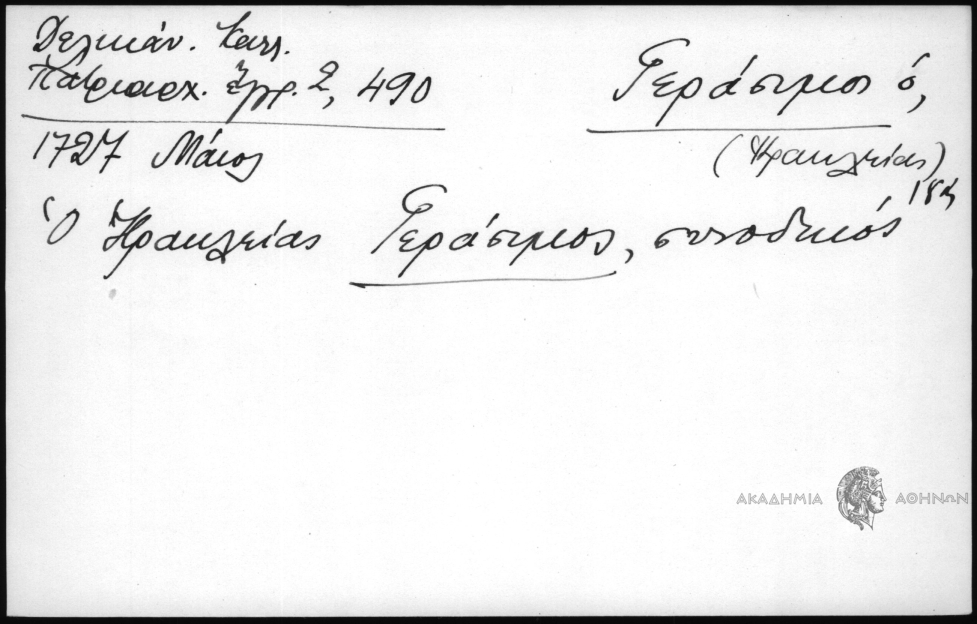 Δελικάν. Καλλ.
Πατριαρχ. Ἔγγρ. 2, 490
Γεράσιμος ὁ,
1727 Μάιος
(Ἡρακλείας)
18
Ὁ Ἡρακλείας Γεράσιμος, συνοδικός
ΑΚΑΔΗΜΙΑ ΑΘΗΝΩΝ